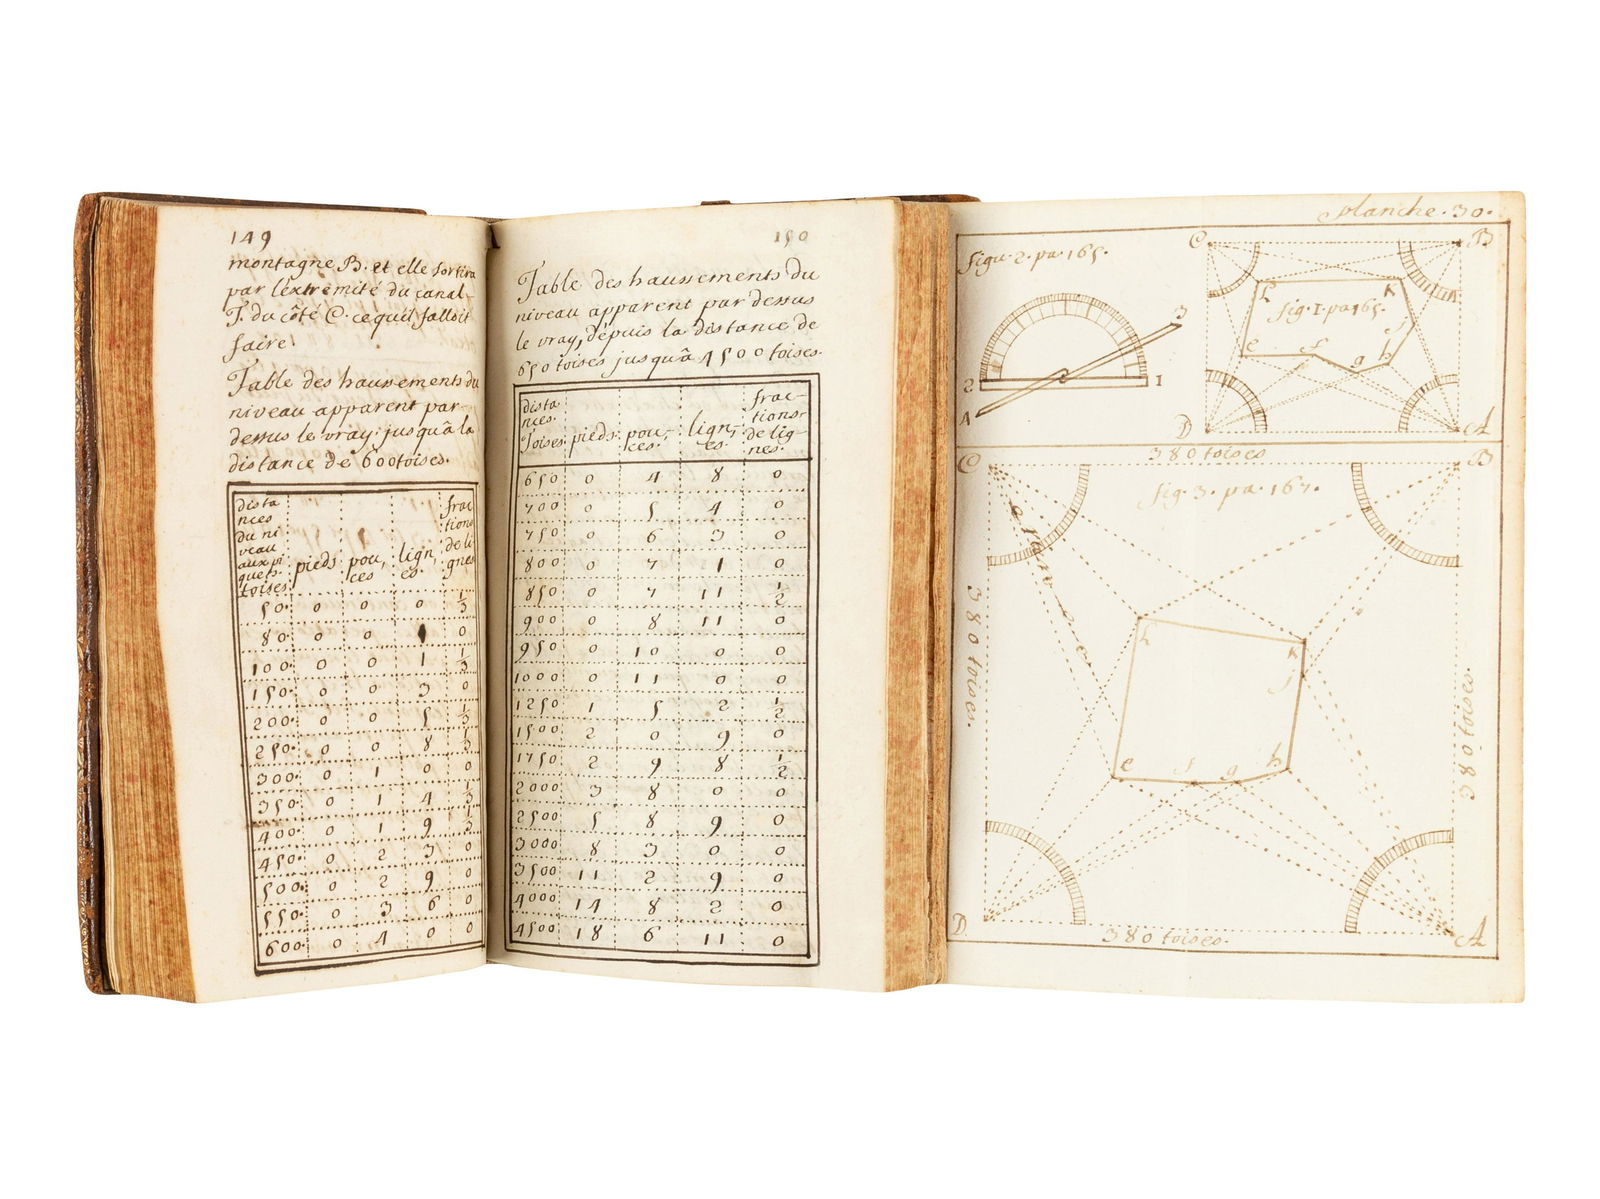 149
montagne B. et elle sortira
par l'éxtremité du canal-
T. du côté C. ce quil falloit
faire.
Table des haussements du
niveau apparent par-
dessus le vray. jusqu'â la
distance de 600 toises.
dista nces du ni veau aux pi quets. toises pieds pou, ces lign, es. frac tions de li gnes
50. 0 0 0 1/3
80. 0 0 1 0
100. 0 0 1 1/3
150. 0 0 3 0
200. 0 0 5 1/3
250. 0 0 8 1/3
300. 0 1 0 0
350. 0 1 4 1/3
400. 0 1 9 1/3
450. 0 2 3 0
500. 0 2 9 0
550. 0 3 6 0
600. 0 4 0 0
150
Table des haussements du
niveau apparent par dessus
le vray, dépuis la distance de
650 toises jusqu'â 4500 toises.
dista nces. Toises. pieds. pou, ces. lign, es. frac- tions de lig- nes.
650 0 4 8 0
700 0 5 4 0
750 0 6 3 0
800 0 7 1 0
850 0 7 11 1/2
900 0 8 11 0
950 0 10 0 0
1000 0 11 0 0
1250 1 5 2 1/2
1500 2 0 9 0
1750 2 9 8 1/2
2000 3 8 0 0
2500 5 8 9 0
3000 8 3 0 0
3500 11 2 9 0
4000 14 8 2 0
4500 18 6 11 0
planche. 30.
figu. 2. pa 165.
3
2
1
A
C
B
L
K
fig. I. pa 165.
J
e
f
g
h
D
A
380 toises
C
B
fig. 3. pa. 167.
380 toises.
380 toises.
L
K
J
e
f
g
h
D
A
380 toises.